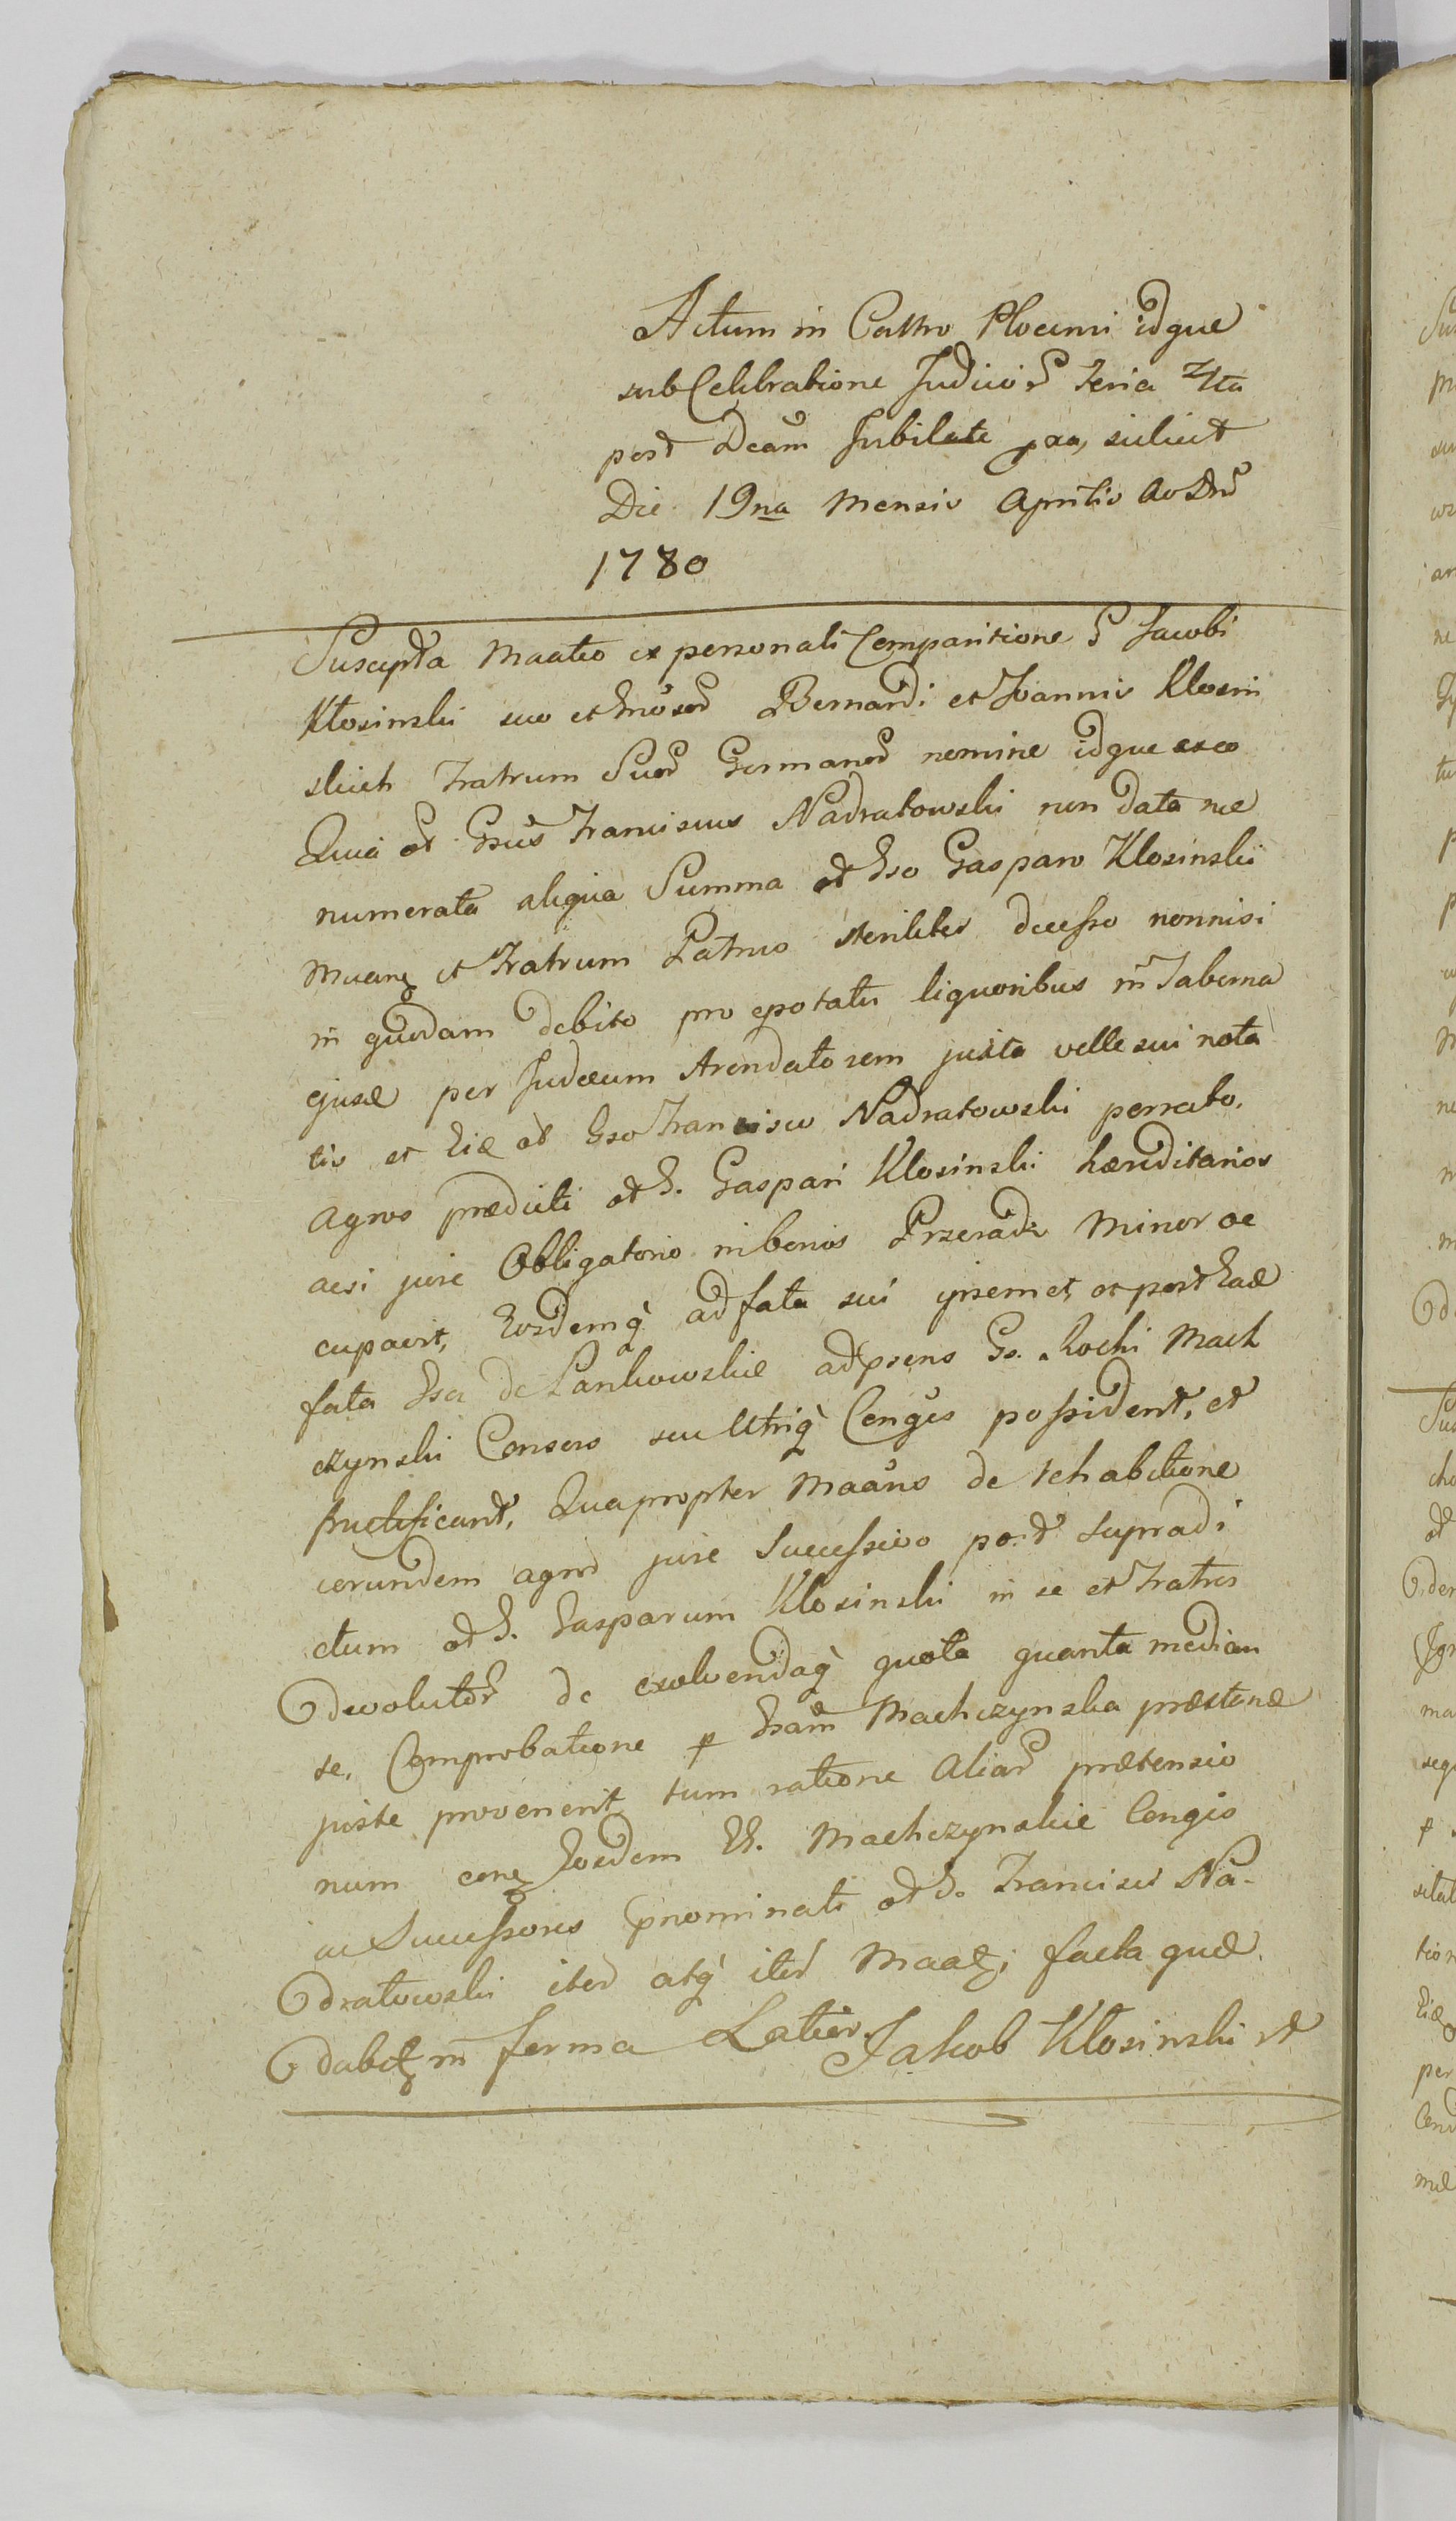 Actum in Castro Plocensi idque
sub Celebratione Judicior Feria 4ta
post Dcam Jubilate pxa, scilicet
Die 19na Mensis Aprilis Ao Dni
1780
Suscepta Maatio ex personali Comparitione G Jacobi
Kłosinski suo et Gnosor Bernardi et Joannis Klosin
skich Fratrum Suor Germanor nomine idque ex eo
Quia ol Gsus Franciscus Nadratowski non data nec
numerata aliqua Summa ol Gso Gasparo Klosinski
Muang et Fratrum Patruo steriliter decesso nonnisi
in quodam debito pro epotatis liquoribus in Taberna
ejusd per Judæum Arendatorem juxta velle sui nota
tis et Eid ol Gso Francisco Nadratowski perrato,
Agros prædicti ol G. Gaspari Klosinski hæreditarios
acsi jure Obligatorio in bonis Przeradz Minor oc
cupavit, Eosdemq ad fata sui ipsemet, et post Ead
fata Gsa de Lankowskie ad præns Gs. Rochi Mach
czynski Consors seu Utriq Conges possident, et
fructificant, Quapropter Maans de rehabitione
eorundem agror jure Successivo post Supradi
ctum ol G. Gasparum Klosinski in se et Fratres
devolutor de exolvendaq quota quanta median
te, Comprobatione p Gsam Machczynska præstand
juste provenerit, tum ratione Aliar prætensio
num cong Eosdem GG. Machczynskie Conges
ac Successores prnominati ol G. Francisci Na-
dratowski iter atq iter Maatg; facta qud
dabitg in forma Latior. Jakob Kłosinski